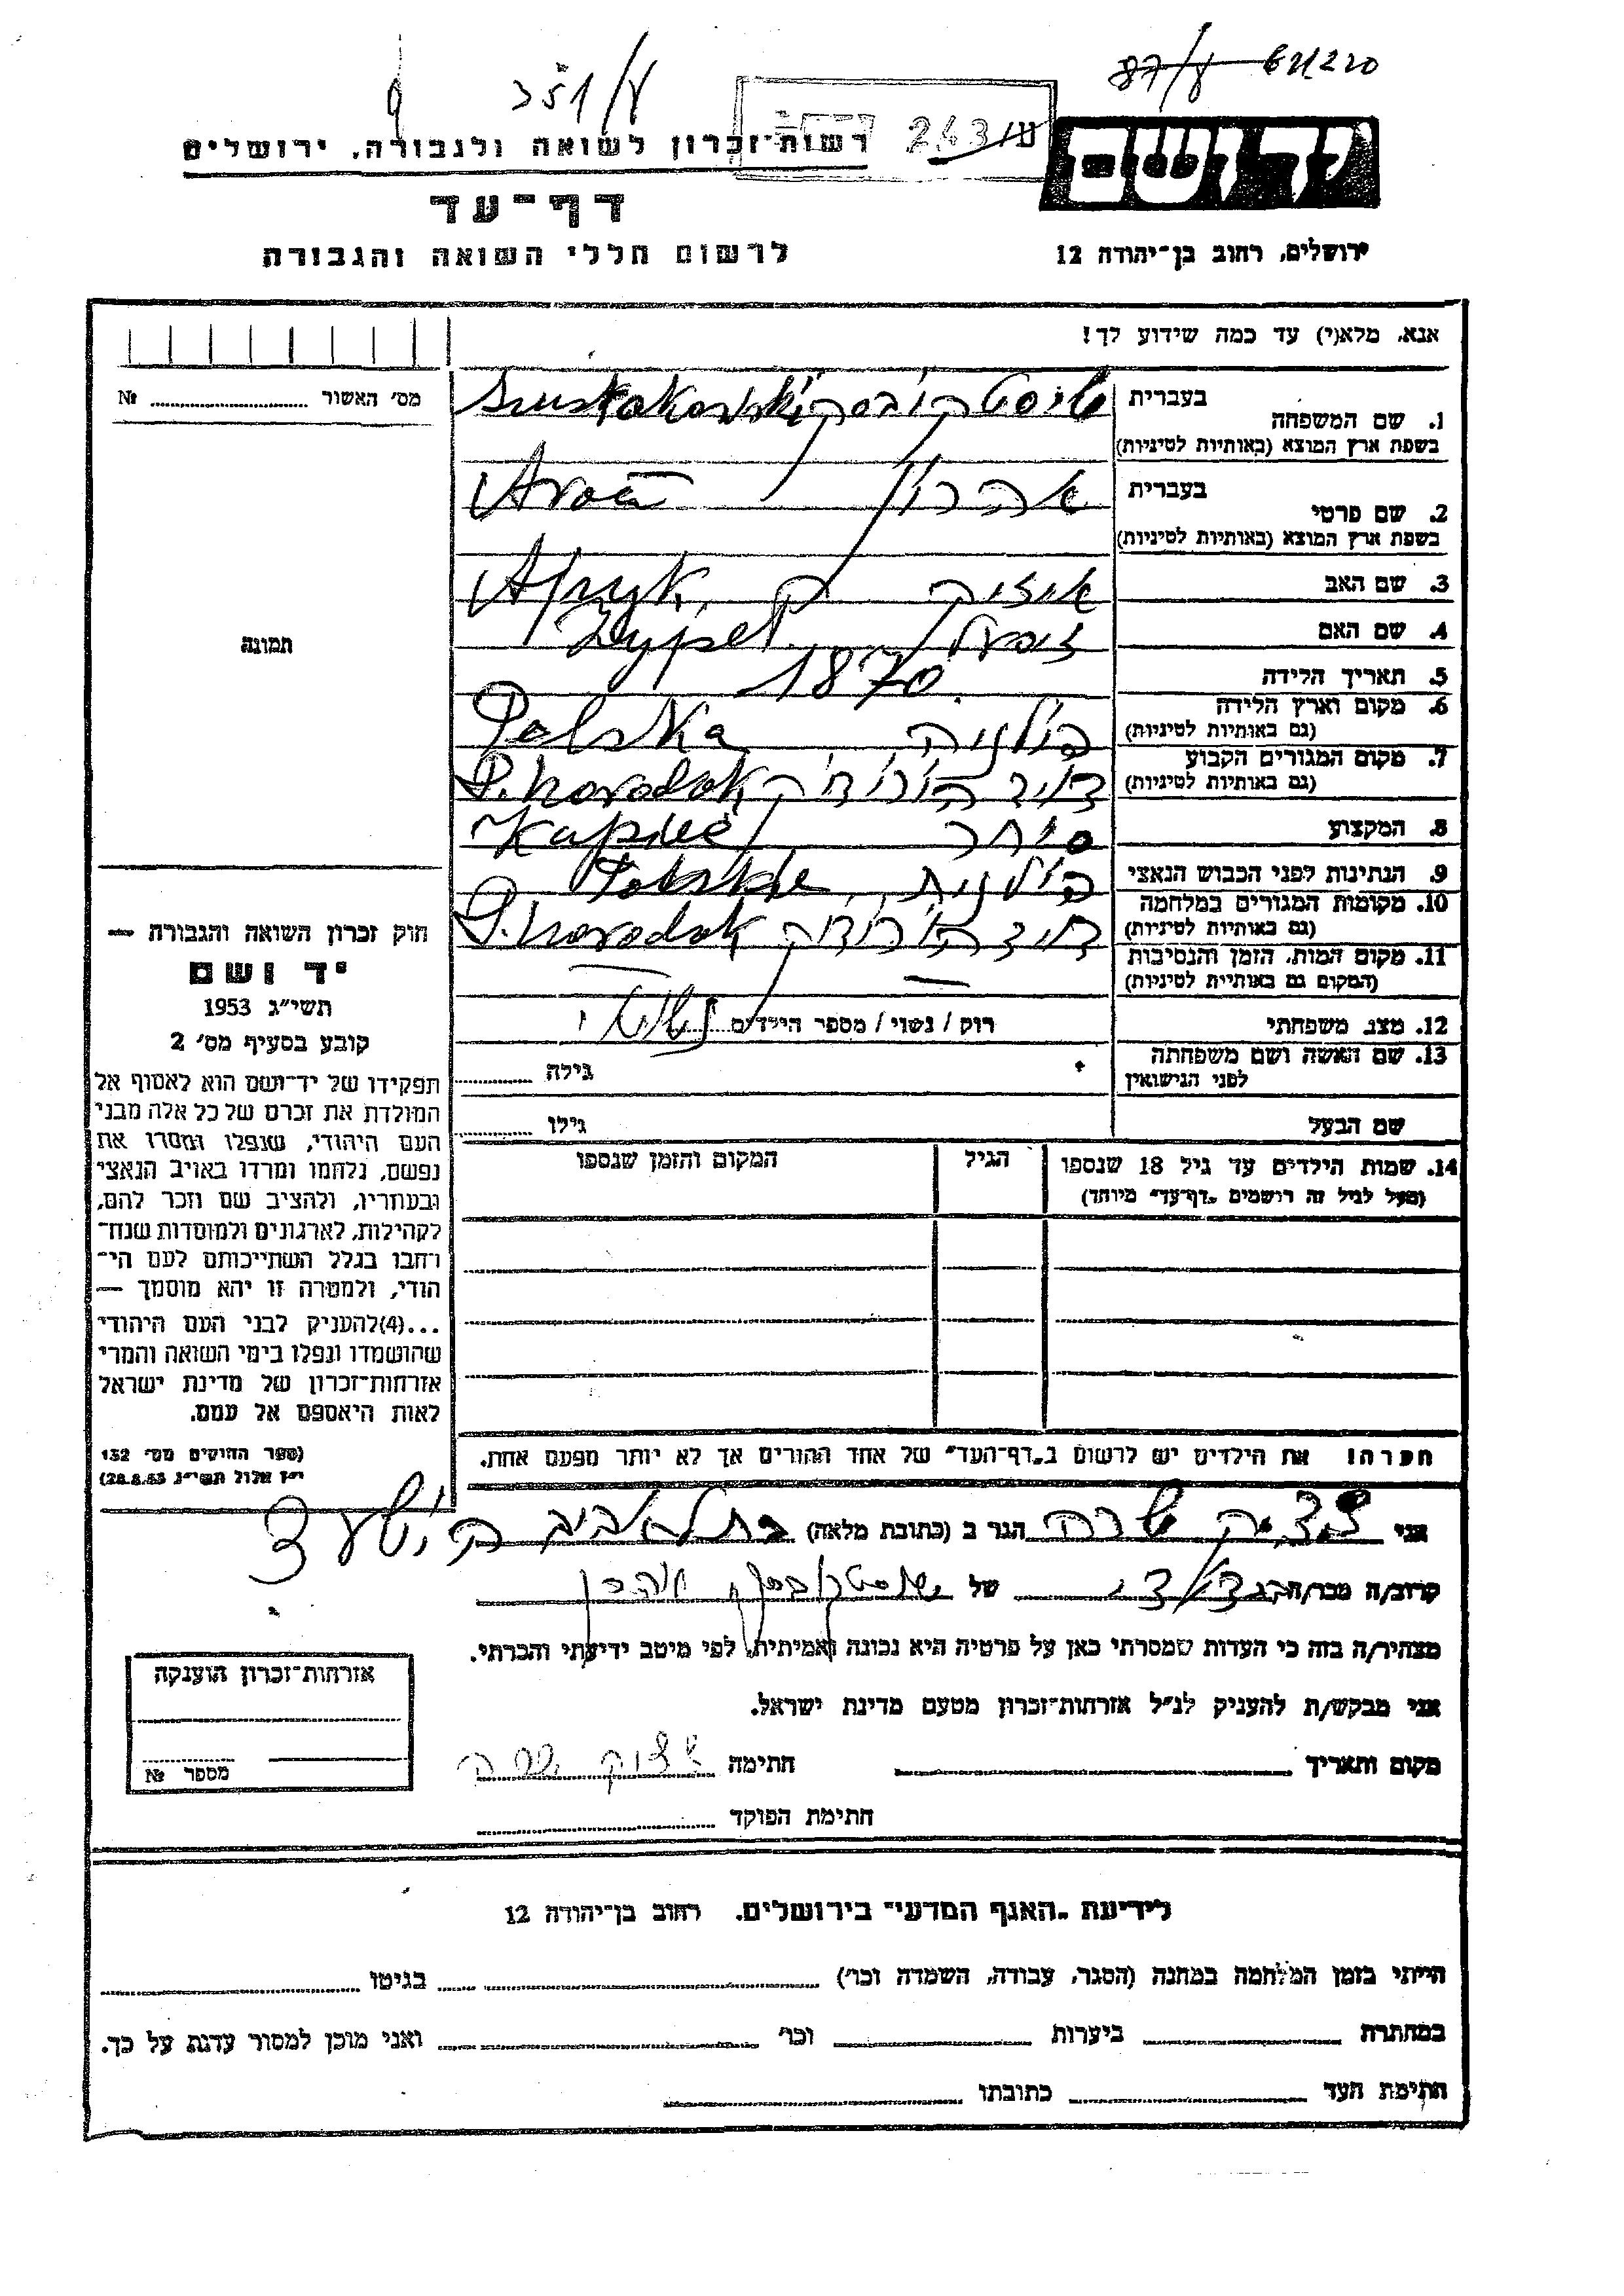 351/ע
87/ע 611220
243/ע
רשות־זכרון לשואה ולגבורה, ירושלים
יד ושם
דף־עד
לרשום חללי השואה והגבורה
ירושלים, רחוב בן־יהודה 12
אנא, מלא(י) עד כמה שידוע לך!
מס׳ האשור № ........
1. שם המשפחה
בעברית
בשפת ארץ המוצא (באותיות לטיניות)
2. שם פרטי
בעברית אהרון
בשפת ארץ המוצא (באותיות לטיניות)
3. שם האב איזיק
4. שם האם
5. תאריך הלידה 1870
6. מקום וארץ הלידה פולניה Polska
(גם באותיות לטיניות)
7. מקום המגורים הקבוע דויד הורודוק D. horodok
(גם באותיות לטיניות)
8. המקצוע סוחר Kupiec
9. הנתינות לפני הכבוש הנאצי פולנית Polskie
10. מקומות המגורים במלחמה דויד הורודוק D. horodok
(גם באותיות לטיניות)
11. מקום המות, הזמן והנסיבות —
(המקום גם באותיות לטיניות)
12. מצב משפחתי רוק / נשוי / מספר הילדים נשוי
13. שם האשה ושם משפחתה
לפני הנישואין
גילה ........
שם הבעל גילו ........
14. שמות הילדים עד גיל 18 שנספו
(מעל לגיל זה רושמים „דף־עד" מיוחד)
הגיל
המקום והזמן שנספו
הערה! את הילדים יש לרשום ב„דף־העד" של אחד ההורים אך לא יותר מפעם אחת.
תמונה
חוק זכרון השואה והגבורה —
יד ושם
תשי״ג 1953
קובע בסעיף מס׳ 2
תפקידו של יד־ושם הוא לאסוף אל
המולדת את זכרם של כל אלה מבני
העם היהודי, שנפלו ומסרו את
נפשם, נלחמו ומרדו באויב הנאצי
ובעוזריו, ולהציב שם וזכר להם,
לקהילות, לארגונים ולמוסדות שנח־
רבו בגלל השתייכותם לעם הי־
הודי, ולמטרה זו יהא מוסמך —
...(4) להעניק לבני העם היהודי
שהושמדו ונפלו בימי השואה והמרי
אזרחות־זכרון של מדינת ישראל
לאות היאספם אל עמם.
(ספר החוקים מס׳ 132
י״ז אלול תשי״ג 28.8.53)
אני שרה הגר ב (כתובת מלאה) בתל אביב
קרוב/ה מכר/ה של אהרון
מצהיר/ה בזה כי העדות שמסרתי כאן על פרטיה היא נכונה ואמיתית, לפי מיטב ידיעתי והכרתי.
אני מבקש/ת להעניק לנ״ל אזרחות־זכרון מטעם מדינת ישראל.
מקום ותאריך חתימה שרה
חתימת הפוקד
אזרחות־זכרון הוענקה
מספר №
לידיעת „האגף המדעי" בירושלים. רחוב בן־יהודה 12
הייתי בזמן המלחמה במחנה (הסגר, עבודה, השמדה וכו׳) בגיטו
במחתרת ביערות וכו׳ ואני מוכן למסור עדות על כך.
חתימת העד כתובתו